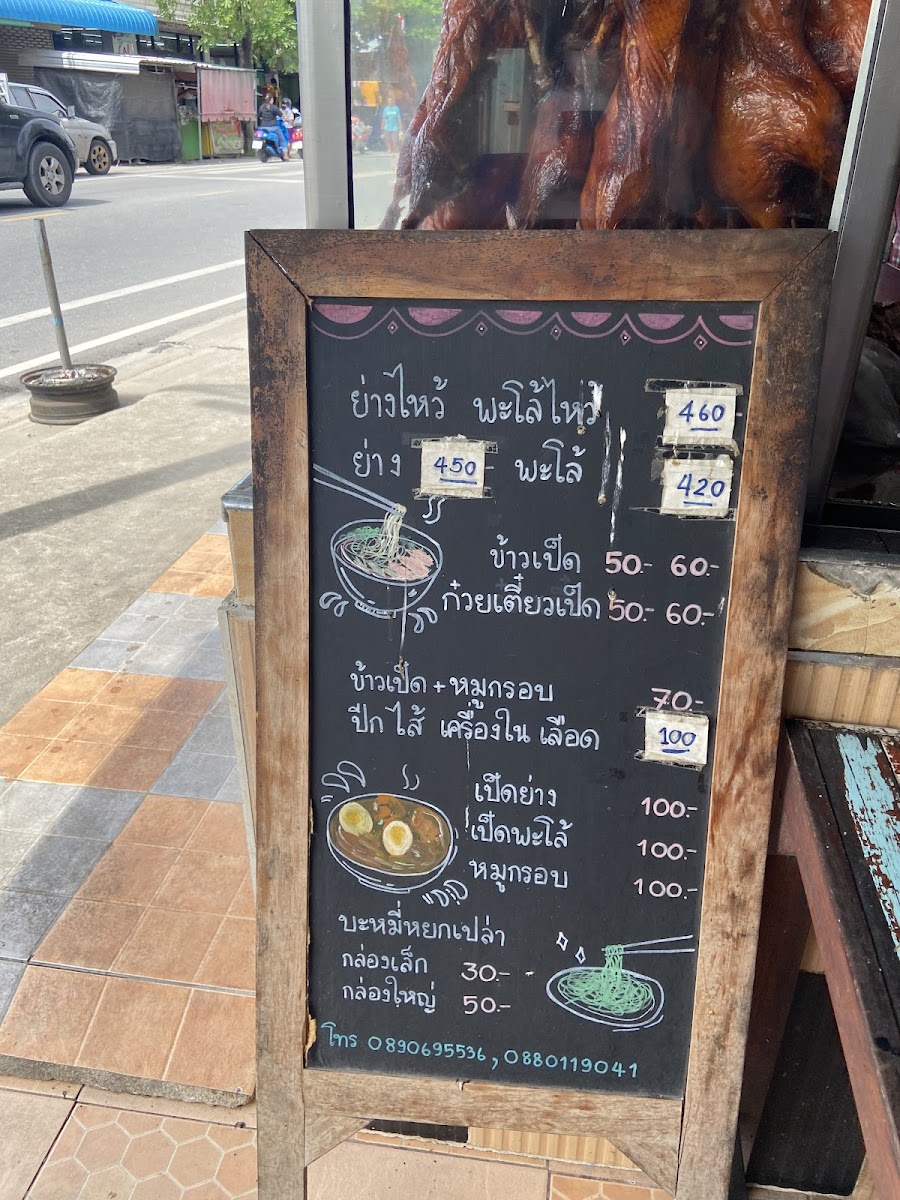 ย่างไหว้ พะโล้ไหว้ 460
ย่าง 450 - พะโล้ 420
ข้าวเป็ด 50.- 60.-
ก๋วยเตี๋ยวเป็ด 50.- 60.-
ข้าวเป็ด + หมูกรอบ 70.-
ปีก ไส้ เครื่องใน เลือด 100
เป็ดย่าง 100.-
เป็ดพะโล้ 100.-
หมูกรอบ 100.-
บะหมี่หยกเปล่า
กล่องเล็ก 30.-
กล่องใหญ่ 50.-
โทร 0890695536, 0880119041